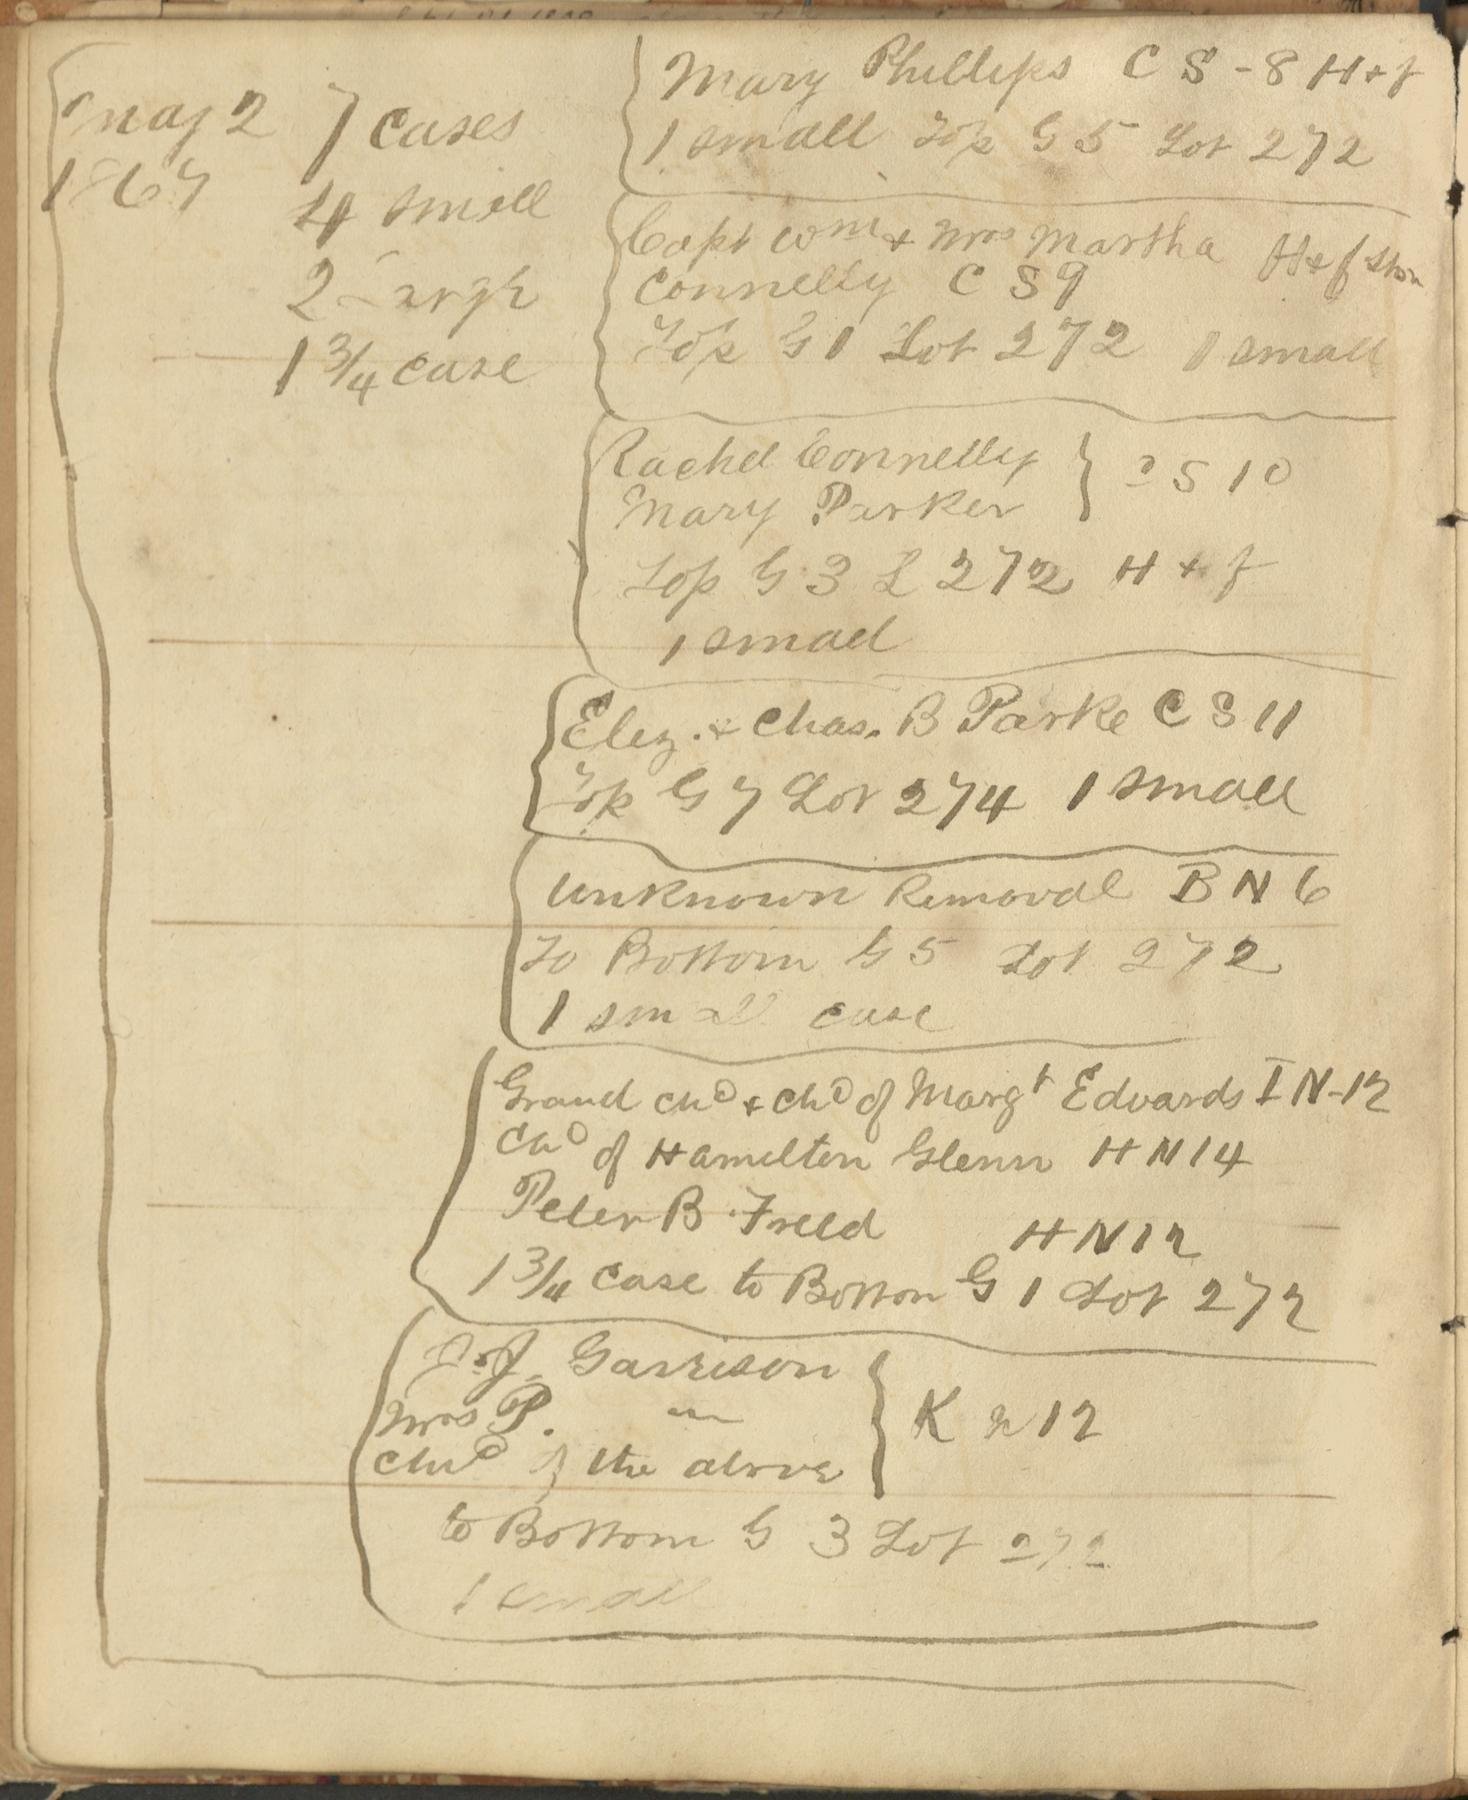 May 2 7 cases
1867 4 small
2 Large
1 3/4 case
Mary Phillips C S - 8 H + f
1 small Top G 5 Lot 272
Capt Wm + Mrs Martha H + f Ston
Connelly C S 9
Top G 1 Lot 272 1 small
Rachel Connelly } C S 10
Mary Parker
Top G 3 L 272 H + f
1 small
Eliz. + Chas. B Parke C S 11
Top G 7 Lot 274 1 small
Unknown Removal B N 6
To Bottom G 5 Lot 272
1 small case
Grand chd + chd of Margt Edwards I N - 12
Chd of Hamilton Glenn H N 14
Peter B. Freed H N 12
1 3/4 case to Bottom G 1 Lot 272
Garrison
Mrs P. " } K N 12
Chd of the above
to Bottom G 3 Lot 272
1 small